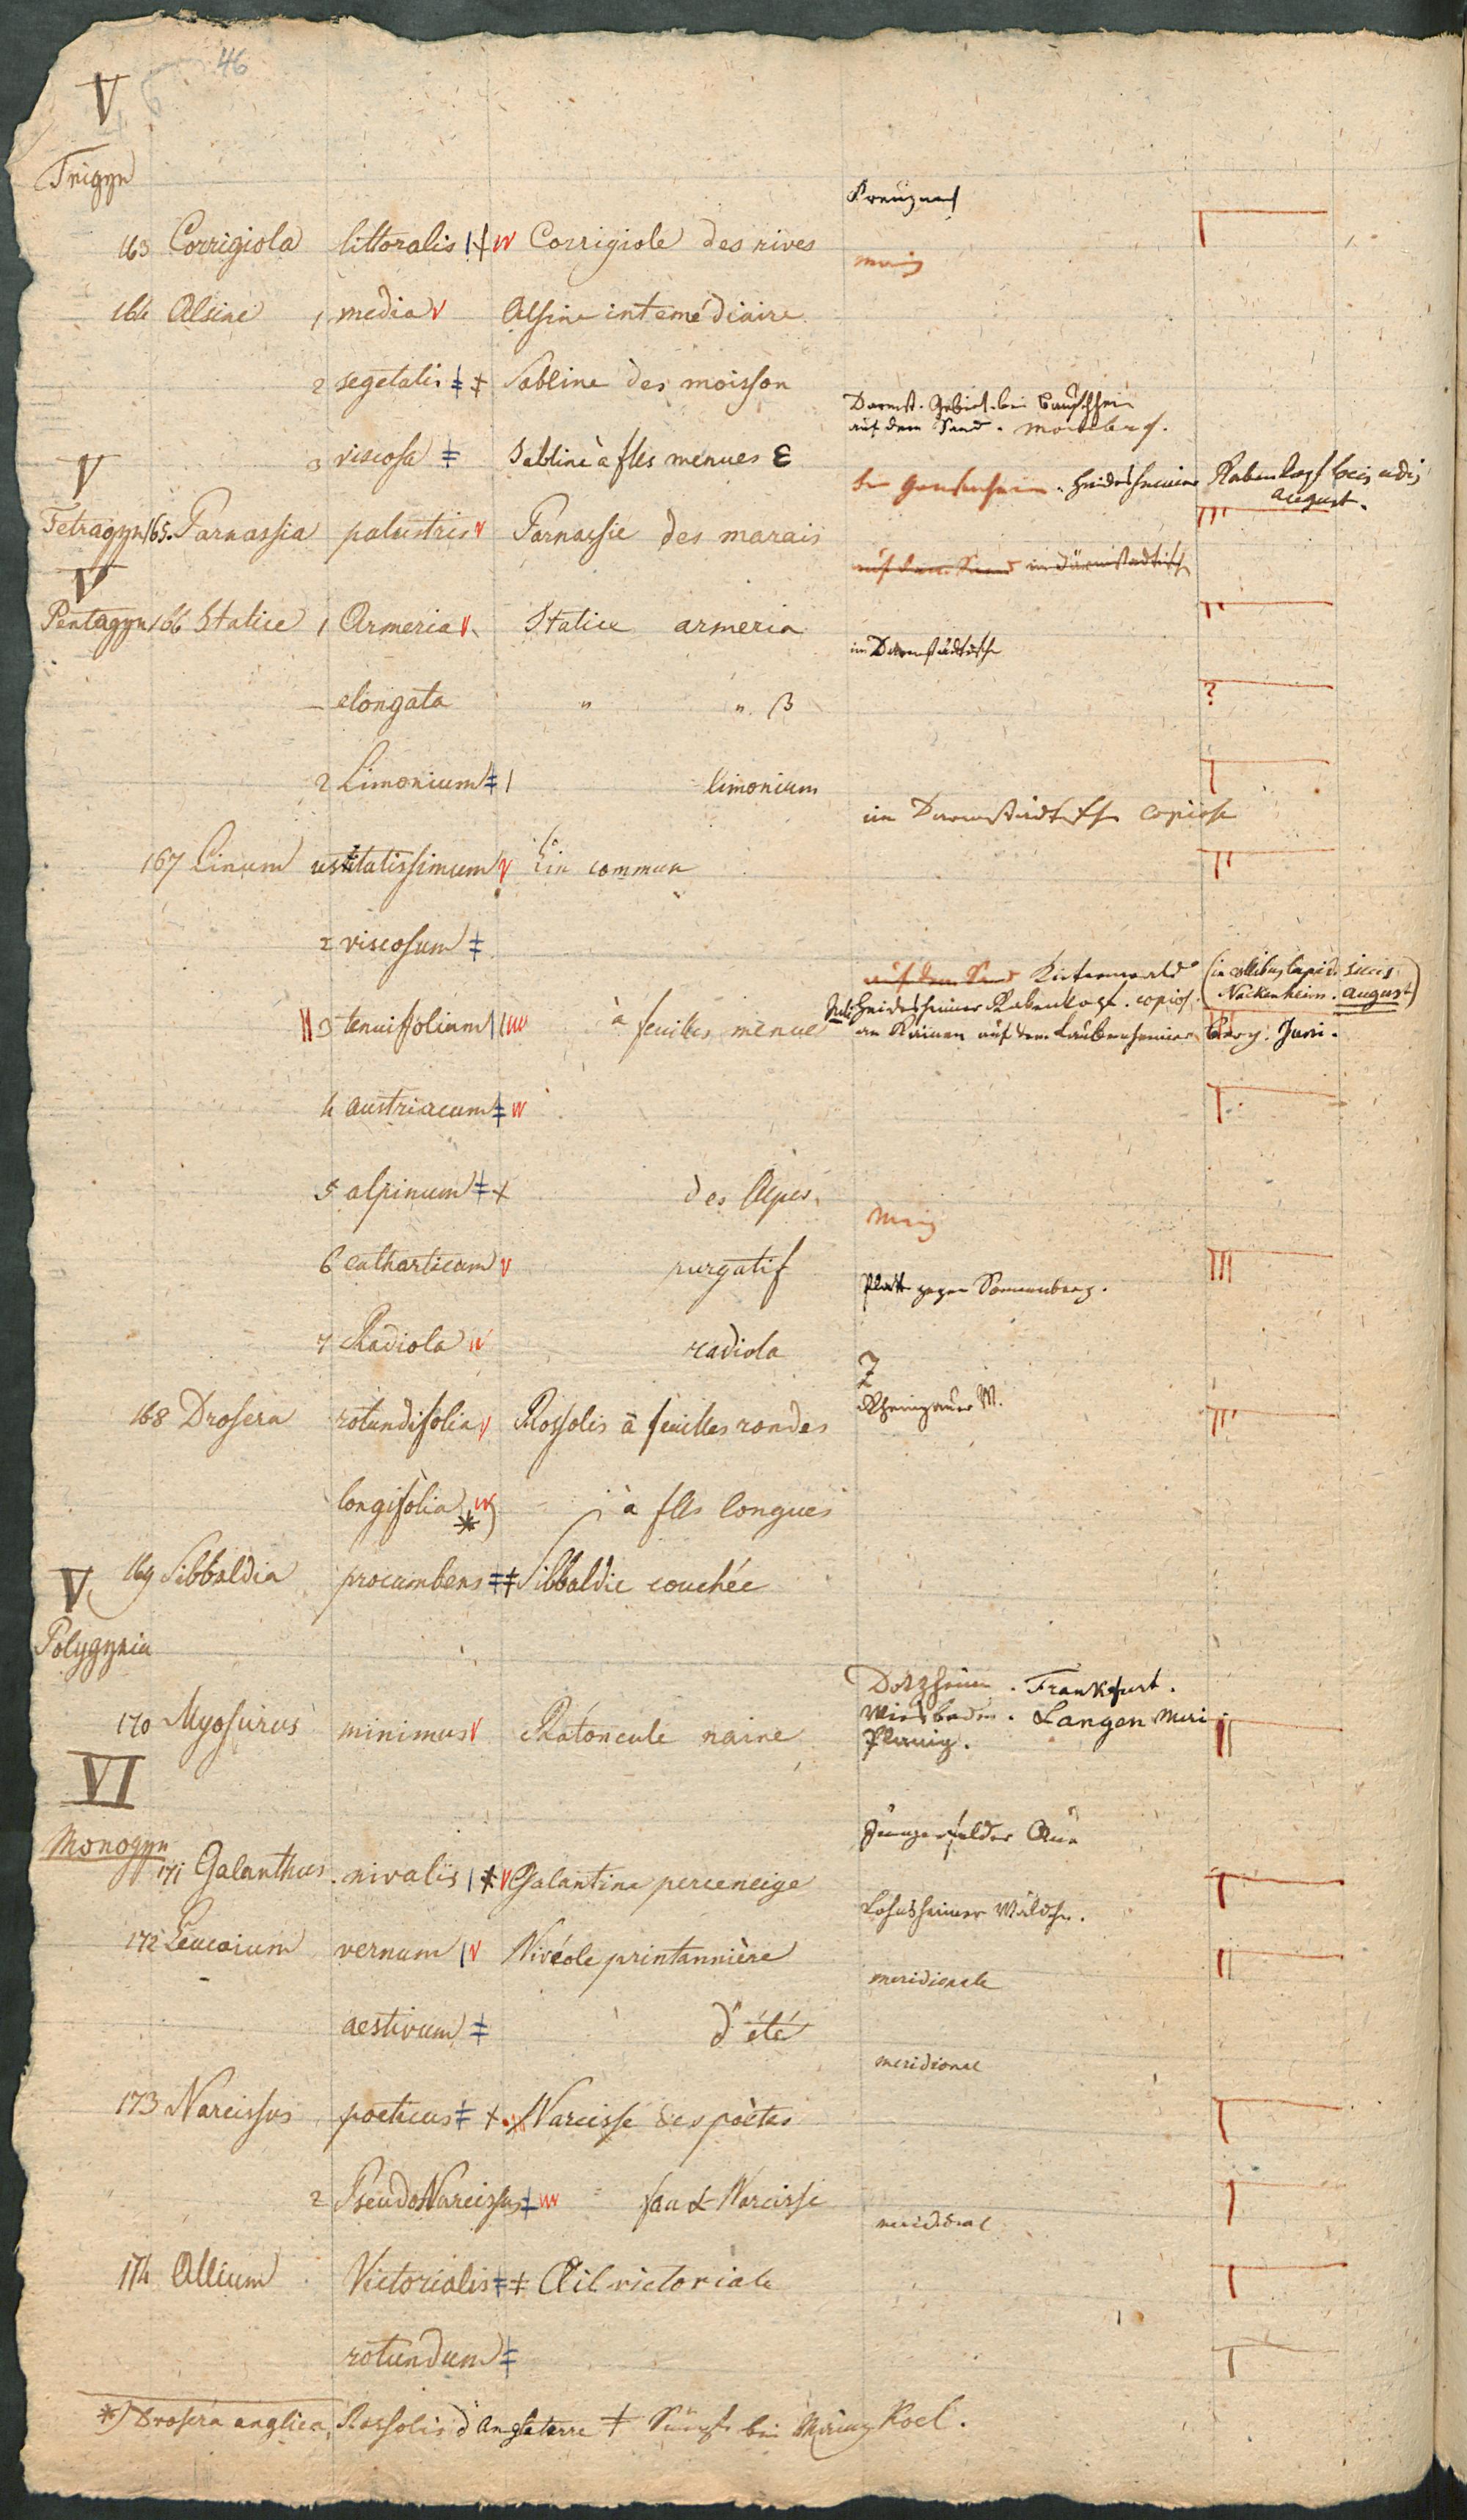 46
V
Trigyn
Kreuznach
163 Corrigiola littoralis Corrigiole des rives
164 Alsine 1 media Alsine intemédiaire
2 segetalis Sabline des moisson
Darmst. Gebiet. bei
auf dem Sand. Mombach.
3 viscosa Sabline à flles menues ε
V
bei Gonsenheim. Heidesheimer Rabenkopf
August.
Tetragyn 165. Parnassia palustris Parnassie des marais
auf dem Sand im Därmstadtisch
V
Pentagyn 166 Statice 1 Armeria Statice armeria
im Darmstädtisch
– elongata " " β
?
2 Limonium limonium
im Darmstädtisch copiose
167 Linum usitatissimum Lin commun
2 viscosum
auf dem Sand Kiefernwald (in collibus lapid. siccis
Juli Heidesheimer Rabenkopf. copios. Nackenheim. August)
3 tenuifolium à feuilles menue
an Rainen auf dem Laubenheimer Berg. Juni.
4 austriacum
5 alpinum des Alpes
6 catharticum purgatif
Platte gegen Sonnenberg.
7 Radiola radiola
Rheingauer W.
168 Drosera rotundifolia Rossolis à feuilles rondes
longifolia *) à flles longues
169 Sibbaldia procumbens Sibbaldie couchée
V
Polygynia
Dotzheim. Frankfurt.
Wiesbaden. Langen
170 Myosurus minimus Ratoncule naine
Planig.
VI
Monogyn
Aue
171 Galanthus nivalis Galantine perceneige
Wäldchen.
172 Leucoium vernum Nivéole printannière
meridionale
aestivum d'été
meridional
173 Narcissus poeticus Narcisse des poètes
2 PseudoNarcissus faux Narcisse
meridional
174 Allium Victorialis Ail victoriale
rotundum
*) Drosera anglica, Rossolis d'Angleterre † Sümpfe bei Mainz Koel.